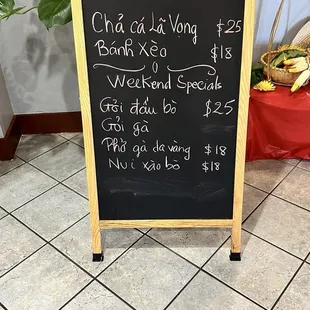 Chả cá Lã Vọng $25
Bánh Xèo $18
Weekend Specials
Gỏi đầu bò $25
Gỏi gà
Phở gà da vàng $18
Nui xào bò $18